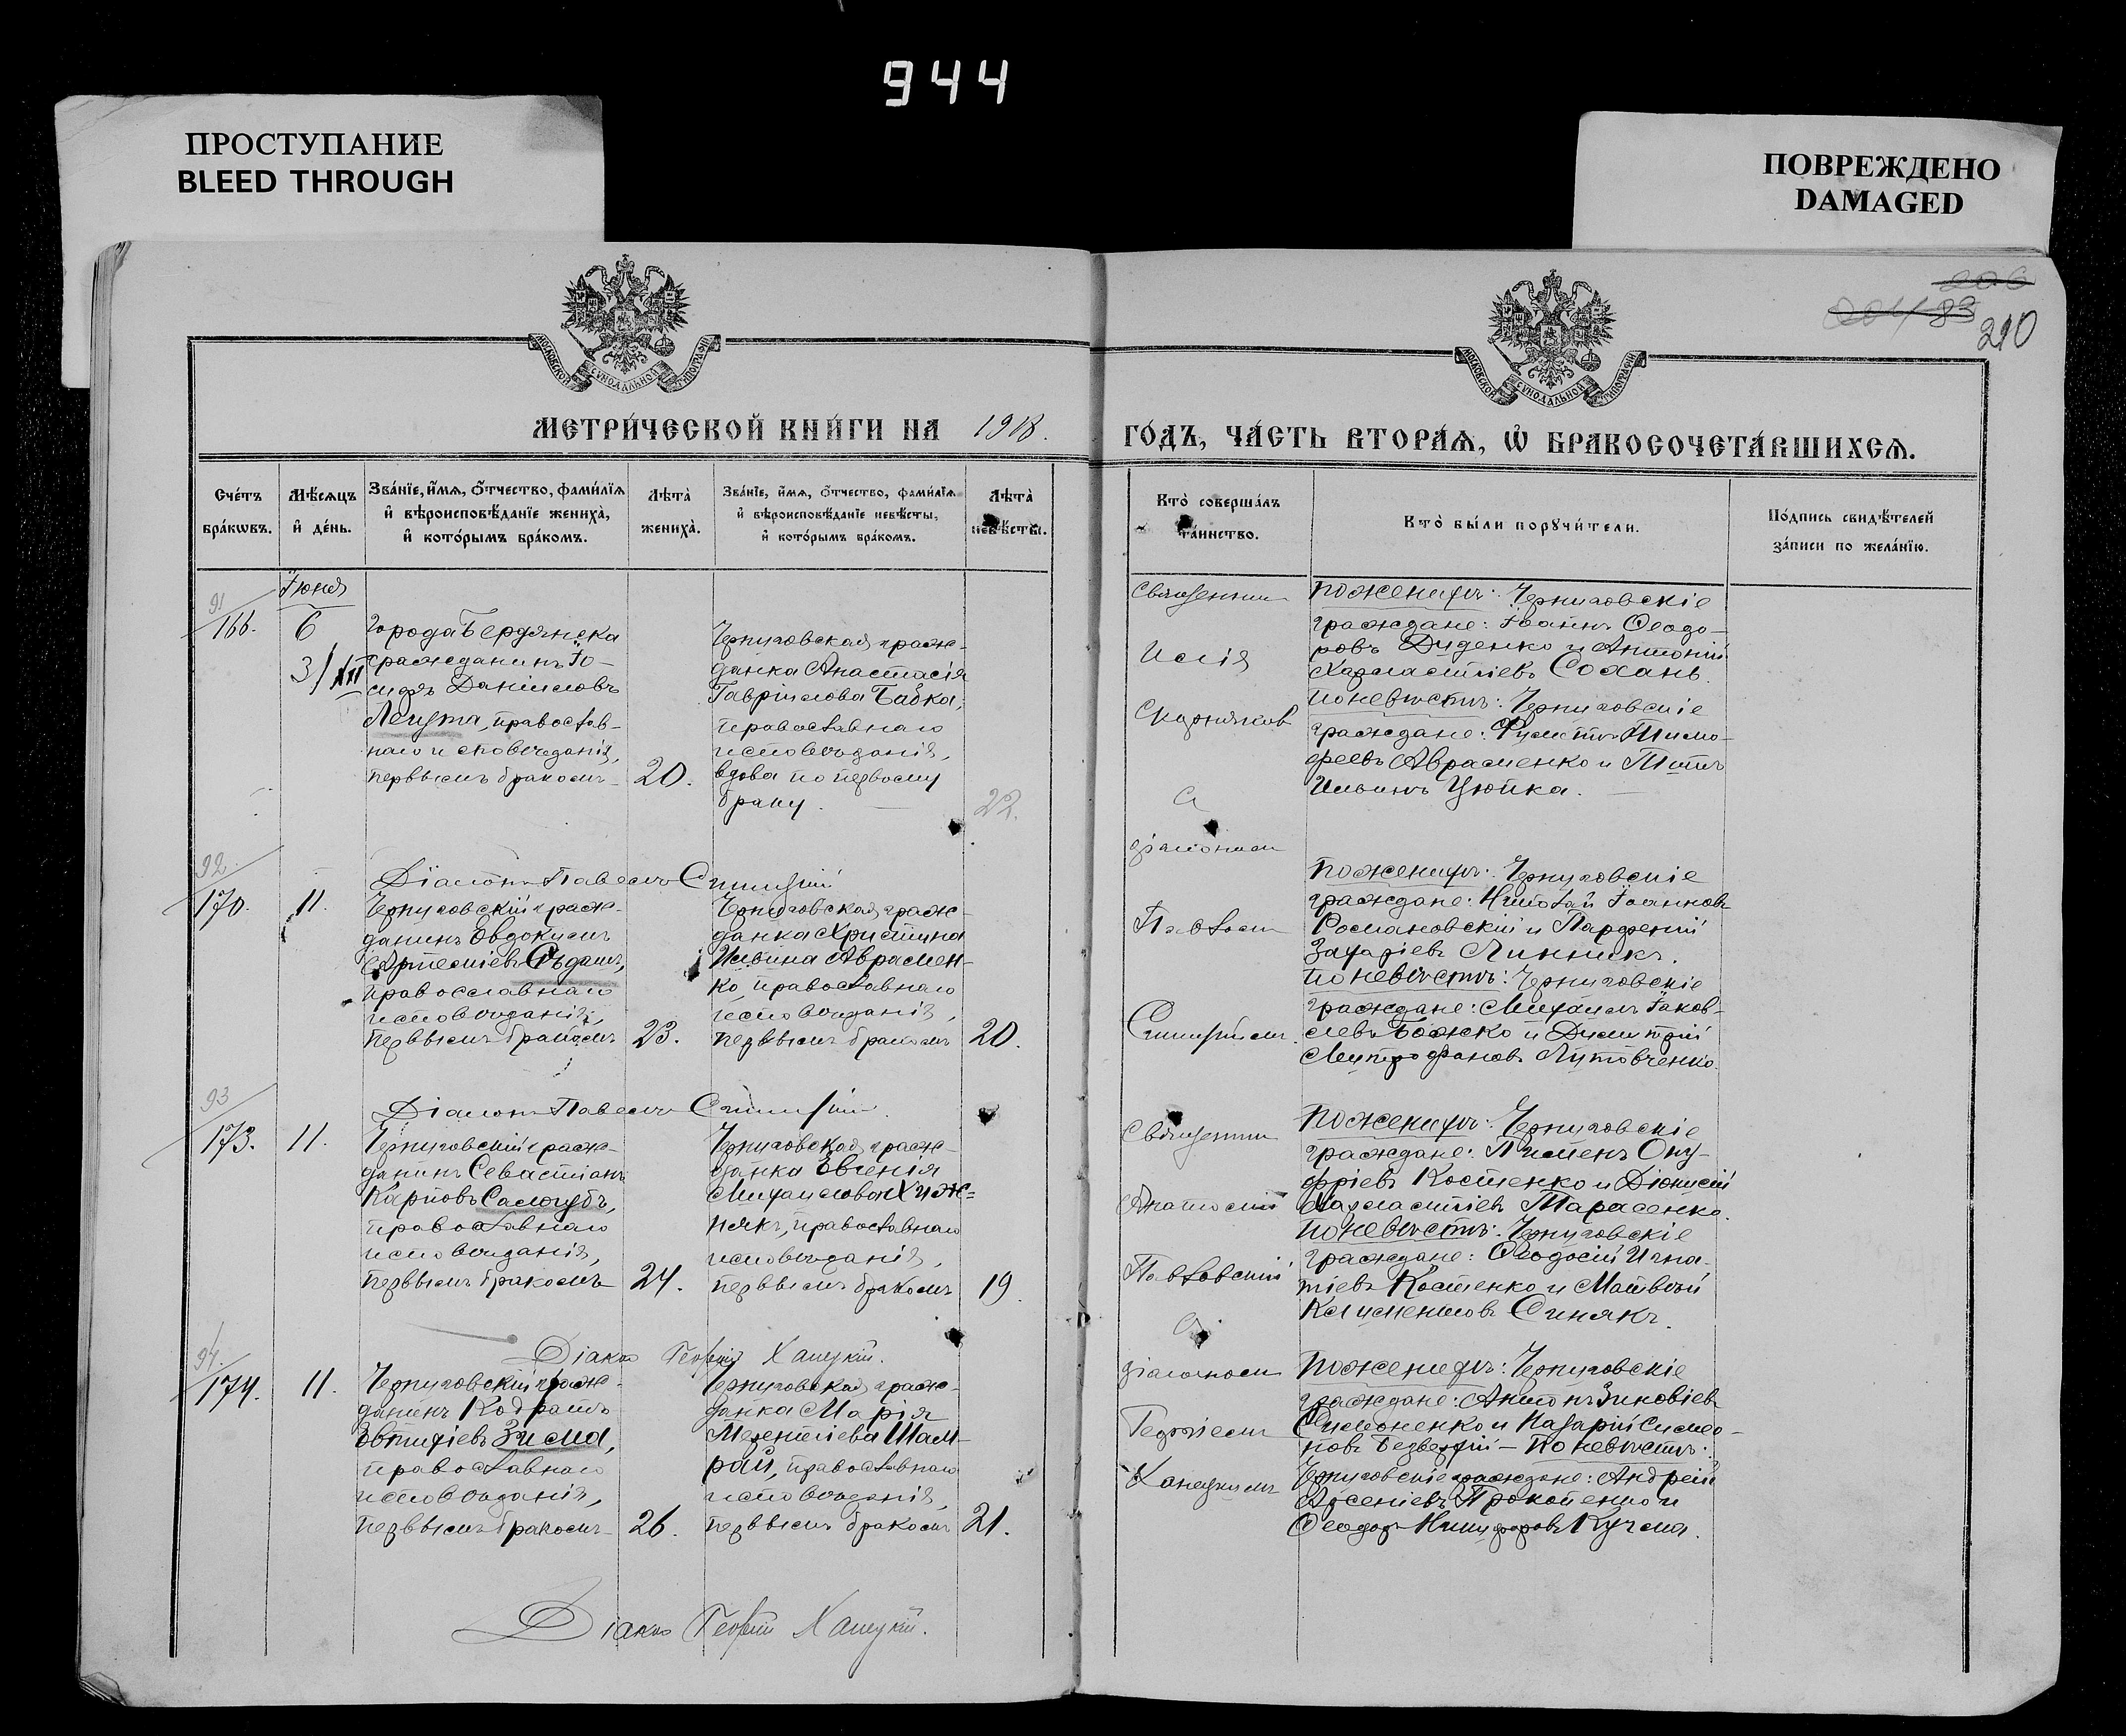 944
ПРОСТУПАНИЕ
BLEED THROUGH
ПОВРЕЖДЕНО
DAMAGED
210
МОСКОВСКОЙ СУНОДАЛЬНОЙ ТИПОГРАФІИ
МОСКОВСКОЙ СУНОДАЛЬНОЙ ТИПОГРАФІИ
МЕТРИ́ЧЕСКОЙ КНИ́ГИ НА 1918.
ГО́ДЪ, ЧА́СТЬ ВТОРА́Я, Ѡ҆ БРАКОСОЧЕТА́ВШИХСЯ.
Сче́тъ
бра́кѡвъ.
Мѣ́сяцъ
и҆ де́нь.
Зва́нїе, и҆́мя, ѻ҆́тчество, фами́лїя
и҆ вѣроисповѣ́данїе жениха̀,
и҆ кото́рымъ бра́комъ.
Лѣта̀
жениха̀.
Зва́нїе, и҆́мя, ѻ҆́тчество, фами́лїя
и҆ вѣроисповѣ́данїе невѣ́сты,
и҆ кото́рымъ бра́комъ.
Лѣта̀
невѣ́сты.
Кто̀ соверша́лъ
та́инство.
Кто̀ бы́ли порꙋчи́тели.
По́дпись свидѣ́телей
за́писи по жела́нїю.
Іюня
91
166.
6
3/XII
города Бердянска
гражданинъ Іо-
сифъ Даніиловъ
православ-
наго исповѣданія,
первымъ бракомъ
20.
Черниговская граж-
данка Анастасія
Гавріилова Бабка,
православнаго
исповѣданія,
вдова по первому
браку.
22.
Священник
Илія
Скорняков
с
діакономъ
Павломъ
По женихѣ: Черниговскіе
граждане: Іоаннъ Ѳеодо-
ровъ Диденко и Антоній
Харлампіевъ Сохань.
По невѣстѣ: Черниговскіе
граждане: Филиппъ Тимо-
феевъ Авраменко и Титъ
Ильинъ Цюпка.
92
170.
11.
Діаконъ Павелъ
Черниговскій граж-
данинъ Овдокимъ
Артеміевъ Сѣдашъ,
православнаго
исповѣданія,
первымъ бракомъ
23.
Черниговская граж-
данка Христина
Ильина Авремен-
ко, православнаго
исповѣданія,
первымъ бракомъ
20.
По женихѣ: Черниговскіе
граждане: Николай Іоанновъ
Романовскій и Парфеній
Захаріевъ Линникъ.
По невѣстѣ: Черниговскіе
граждане: Михаилъ Іаков-
левъ Божко и Димитрій
Митрофановъ Литовченко.
93
173.
11.
Діаконъ Павелъ
Черниговскій граж-
данинъ Севастіанъ
Карповъ Самогубъ,
православнаго
исповѣданія,
первымъ бракомъ
24.
Черниговская граж-
данка Евгенія
Михаилова Хиж-
някъ, православнаго
исповѣданія,
первымъ бракомъ
19.
Священник
Анатолій
Павловскій
с
По женихѣ: Черниговскіе
граждане: Пименъ Ону-
фріевъ Костенко и Діонисій
Харлампіевъ Тарасенко.
По невѣстѣ: Черниговскіе
граждане: Ѳеодосій Игна-
тіевъ Костенко и Матвѣй
Климентовъ Синякъ.
94.
174.
11.
Діаконъ Георгій Ханецкій.
Черниговскій граж-
данинъ Кодратъ
Евтихіевъ Зима,
православнаго
исповѣданія,
первымъ бракомъ
26.
Черниговская граж-
данка Марія
Мелентіева Шам-
рай, православнаго
исповѣданія,
первымъ бракомъ
21.
діакономъ
Георгіемъ
Ханецкимъ
По женихѣ: Черниговскіе
граждане: Антонъ Зиновіевъ
Симоненко и Назарій Симео-
новъ Безверхій – По невѣстѣ:
Черниговскіе граждане: Андрей
Арсеніевъ Прокопенко и
Ѳеодоръ Никифоровъ Кучма.
Діаконъ Георгій Ханецкій.